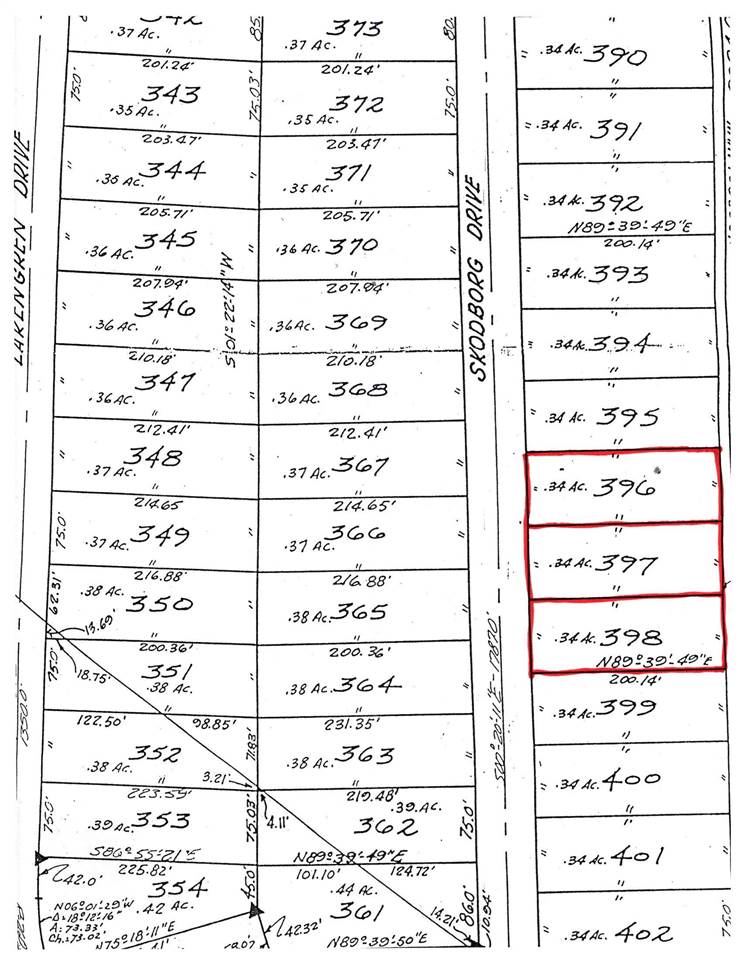 342
.37 Ac.
85.
201.24'
75.0'
343
.35 Ac.
75.03'
203.47'
344
.35 Ac.
205.71'
345
.36 Ac.
S 01° 22' 14" W
207.94'
346
.36 Ac.
210.18'
347
.36 AC.
212.41'
348
.37 Ac.
214.65
75.0'
349
.37 Ac.
216.88'
62.31'
.38 Ac.
350
13.69'
200.36'
75.0'
18.75'
351
.38 Ac.
122.50'
98.85'
71.83'
352
.38 Ac.
3.21'
223.59'
75.0'
.39 Ac.
353
75.03'
4.11'
S86° 55' 21" E
225.82'
42.0'
354
.42 Ac.
45.0'
N06° 01' 29" W
Δ: 18° 12' 16"
A: 73.33'
Ch.: 73.02'
N75° 18' 11" E
42.32'
LAKENGREN DRIVE
1350.0'
373
.37 Ac.
80.
201.24'
372
75.0'
.35 Ac.
203.47'
371
.35 Ac.
205.71'
370
.36 Ac.
207.94'
369
.36 Ac.
210.18'
368
.36 Ac.
212.41'
367
.37 Ac.
214.65'
366
.37 Ac.
216.88'
365
.38 Ac.
200.36'
364
.38 Ac.
231.35'
363
.38 Ac.
219.48'
.39 Ac.
362
75.0'
N89° 39' 49" E
101.10'
124.72'
.44 Ac.
361
14.21'
86.0'
N89° 39' 50" E
SKODBORG DRIVE
10.94'
.34 Ac. 390
.34 Ac. 391
.34 Ac. 392
N89° 39' 49" E
200.14'
.34 Ac. 393
.34 Ac. 394
.34 Ac. 395
.34 Ac. 396
.34 Ac. 397
.34 Ac. 398
N89° 39' 49" E
200.14'
.34 Ac. 399
.34 Ac. 400
.34 Ac. 401
.34 Ac. 402
75.0'